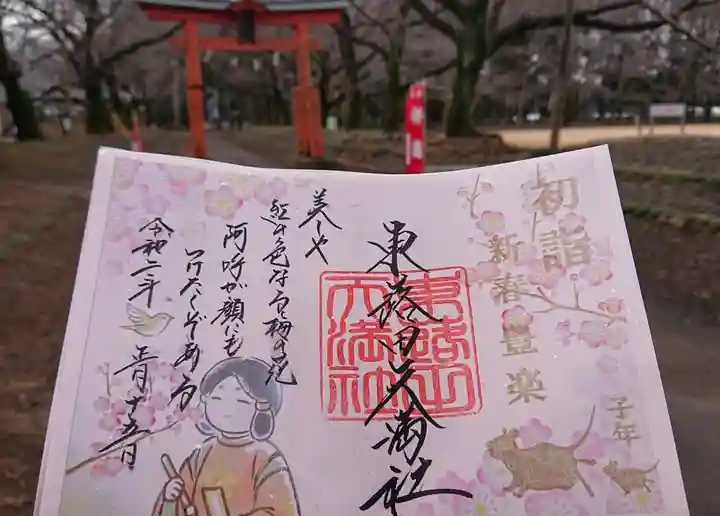 初詣
新春豊楽
子年
東蕗田天満社
東蕗田
天満社
美しや
紅の色なる梅の花
阿呼が顔にも
つけたくぞある
令和二年
正月十五日